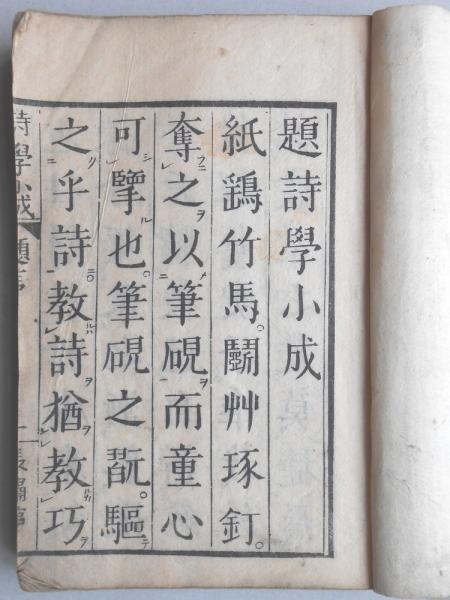 題詩學小成
紙鷂竹馬。鬭艸琢釘。
奪之以筆硯而童心
可擥也。筆硯之翫。驅
之乎詩。教詩猶教巧
詩學小成